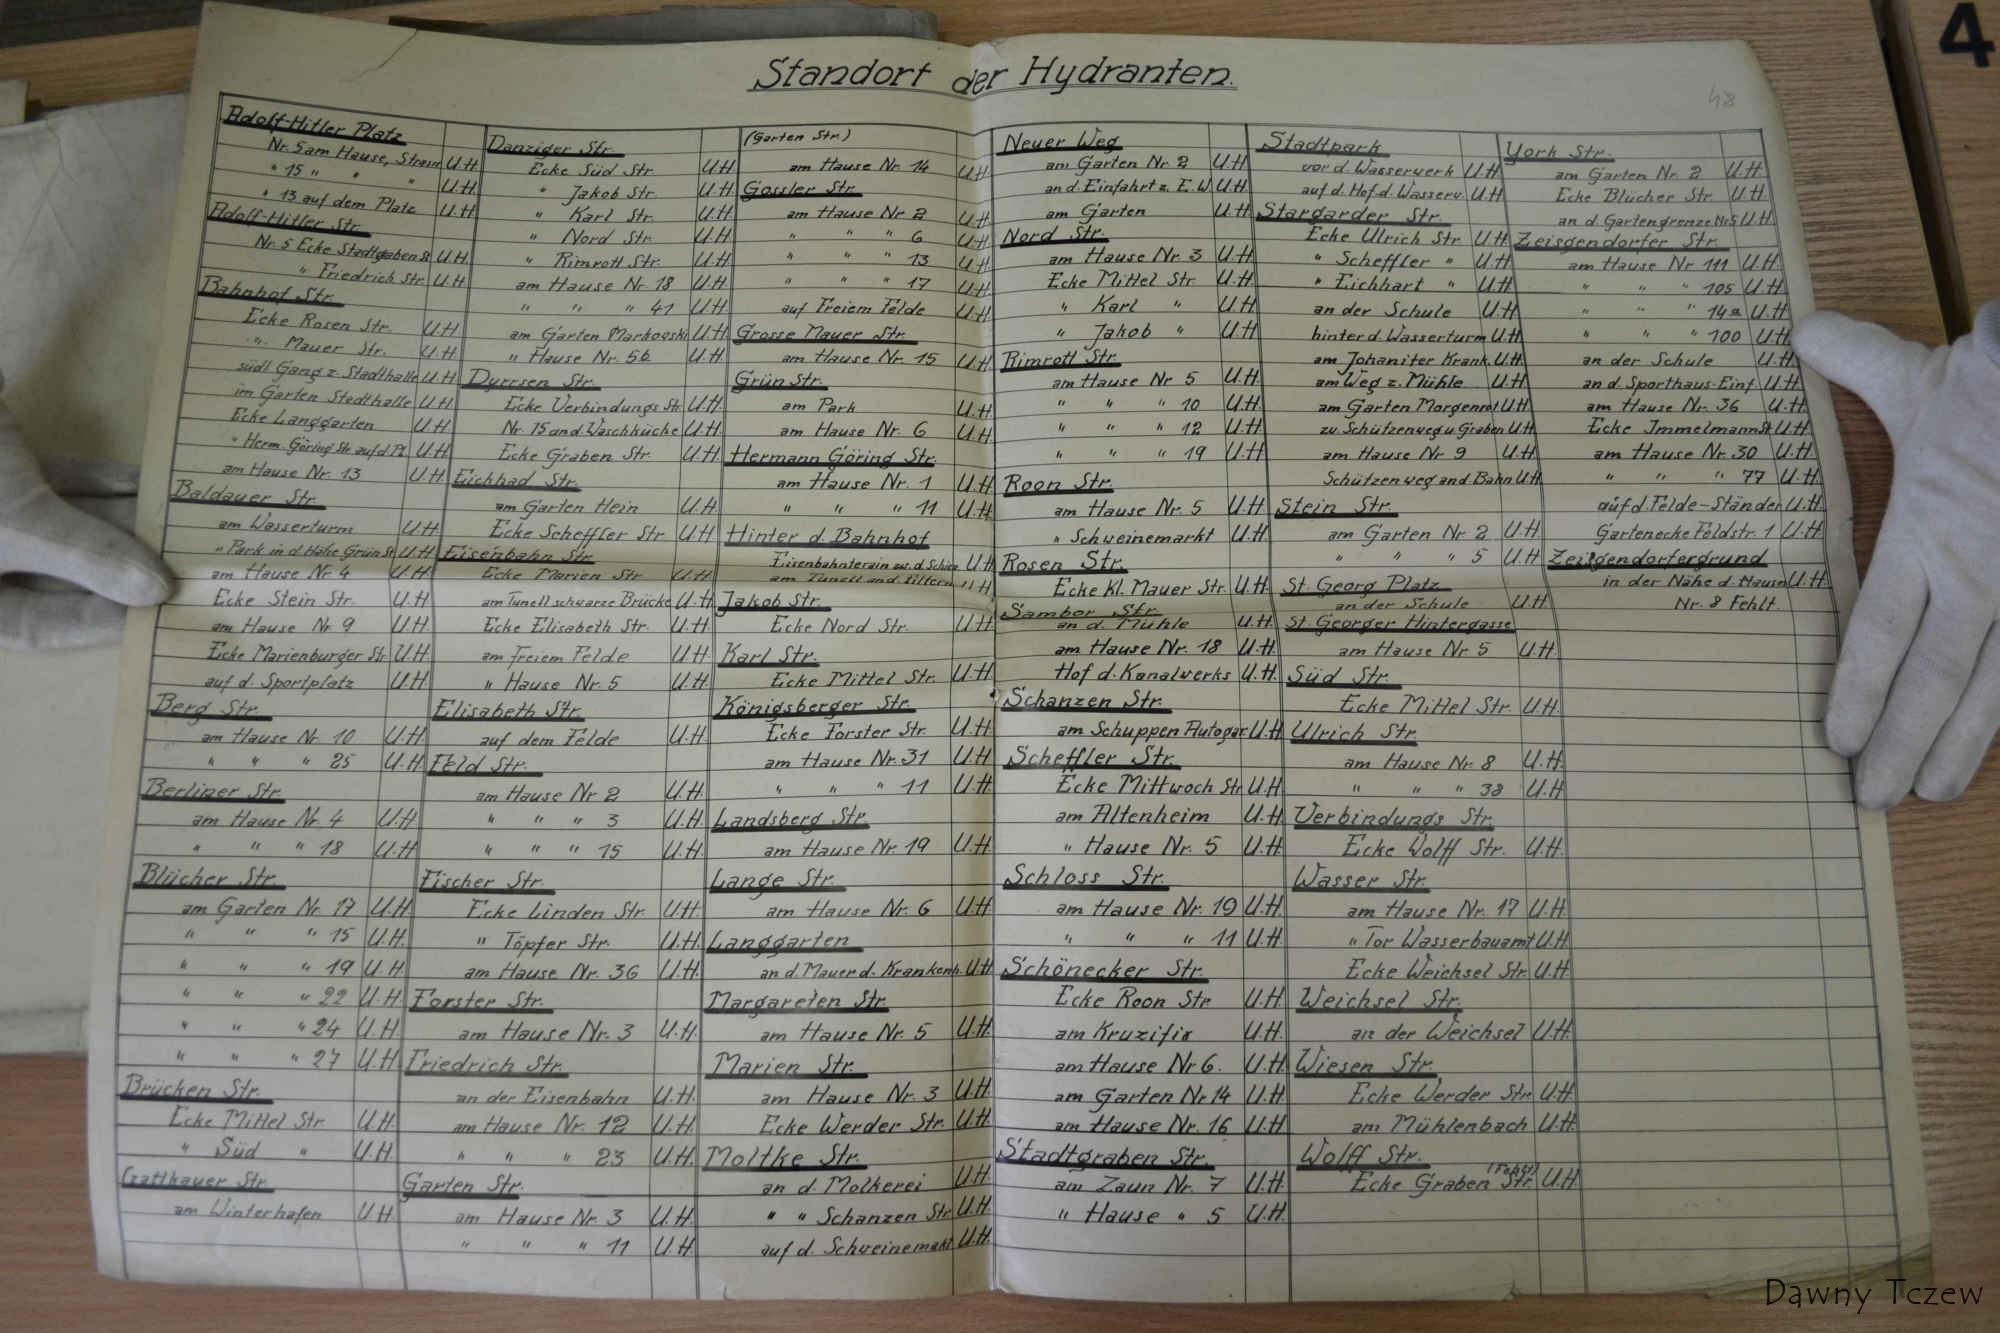 Standort der Hydranten.
48
4
Adolf-Hitler Platz
Nr. 5 am Hause, U.H.
" 15 " " " U.H.
" 13 auf dem Platz U.H.
Adolf-Hitler Str.
Nr. 5 Ecke Stadtgraben St U.H.
" Friedrich Str. U.H.
Bahnhof Str.
Ecke Rosen Str. U.H.
" Mauer Str. U.H.
südl Gang z. Stadthalle U.H.
im Garten Stadthalle U.H.
Ecke Langgarten U.H.
" Herm. Göring Str. auf d. Pl. U.H.
am Hause Nr. 13 U.H.
Baldauer Str.
am Wasserturm U.H.
" Park in d. Nähe Grün St. U.H.
am Hause Nr. 4 U.H.
Ecke Stein Str. U.H.
am Hause Nr 9 U.H.
Ecke Marienburger Str. U.H.
auf d. Sportplatz U.H.
Berg Str.
am Hause Nr. 10 U.H.
" " " 25 U.H.
Berliner Str.
am Hause Nr. 4 U.H.
" " " 18 U.H.
Blücher Str.
am Garten Nr. 17 U.H.
" " " 15 U.H.
" " " 19 U.H.
" " " 22 U.H.
" " " 24 U.H.
" " " 27 U.H.
Brücken Str.
Ecke Mittel Str. U.H.
" Süd " U.H.
Gatthauer Str.
am Winterhafen U.H.
Danziger Str.
Ecke Süd Str. U.H.
" Jakob Str. U.H.
" Karl Str. U.H.
" Nord Str. U.H.
" Rimrott Str. U.H.
am Hause Nr. 18 U.H.
" " " 41 U.H.
am Garten Markovski U.H.
" Hause Nr. 56 U.H.
Dyrrsen Str.
Ecke Verbindungs Str. U.H.
Nr. 15 an d. Waschküche U.H.
Ecke Graben Str. U.H.
Eichhad Str.
am Garten Hein U.H.
Ecke Scheffler Str. U.H.
Eisenbahn Str.
Ecke Marien Str. U.H.
am Tunell schwarze Brücke U.H.
Ecke Elisabeth Str. U.H.
am freiem Felde U.H.
" Hause Nr. 5 U.H.
Elisabeth Str.
auf dem Felde U.H.
Feld Str.
am Hause Nr 2 U.H.
" " " 3 U.H.
" " " 15 U.H.
Fischer Str.
Ecke Linden Str. U.H.
" Töpfer Str. U.H.
am Hause Nr. 36 U.H.
Forster Str.
am Hause Nr. 3 U.H.
Friedrich Str.
an der Eisenbahn U.H.
am Hause Nr. 12 U.H.
" " " 23 U.H.
Garten Str.
am Hause Nr. 3 U.H.
" " " 11 U.H.
(Garten Str.)
am Hause Nr. 14 U.H.
Gossler Str.
am Hause Nr. 2 U.H.
" " " 6 U.H.
" " " 13 U.H.
" " " 17 U.H.
auf Freiem Felde U.H.
Grosse Mauer Str.
am Hause Nr. 15 U.H.
Grün Str.
am Park U.H.
am Hause Nr. 6 U.H.
Hermann Göring Str.
am Hause Nr. 1 U.H.
" " " 11 U.H.
Hinter d. Bahnhof
Eisenbahnterain U.H.
am Tunell U.H.
Jakob Str.
Ecke Nord Str. U.H.
Karl Str.
Ecke Mittel Str. U.H.
Königsberger Str.
Ecke Forster Str. U.H.
am Hause Nr. 31 U.H.
" " " 11 U.H.
Landsberg Str.
am Hause Nr 19 U.H.
Lange Str.
am Hause Nr. 6 U.H.
Langgarten
an d. Mauer d. Krankenh. U.H.
Margareten Str.
am Hause Nr. 5 U.H.
Marien Str.
am Hause Nr. 3 U.H.
Ecke Werder Str. U.H.
Moltke Str.
an d. Molkerei U.H.
" " Schanzen Str. U.H.
auf d. Schweinemakt U.H.
Neuer Weg
am Garten Nr. 2 U.H.
an d. Einfahrt z. E.W U.H.
am Garten U.H.
Nord Str.
am Hause Nr. 3 U.H.
Ecke Mittel Str. U.H.
" Karl " U.H.
" Jakob " U.H.
Rimrott Str.
am Hause Nr 5 U.H.
" " " 10 U.H.
" " " 12 U.H.
" " " 19 U.H.
Roon Str.
am Hause Nr. 5 U.H.
" Schweinemarkt U.H.
Rosen Str.
Ecke Kl. Mauer Str. U.H.
Sambor Str.
an d. Mühle U.H.
am Hause Nr. 18 U.H.
Hof d. Kanalwerks U.H.
Schanzen Str.
am Schuppen Autogar U.H.
Scheffler Str.
Ecke Mittwoch Str U.H.
am Altenheim U.H.
" Hause Nr. 5 U.H.
Schloss Str.
am Hause Nr. 19 U.H.
" " " 11 U.H.
Schönecker Str.
Ecke Roon Str U.H.
am Kruzifix U.H.
am Hause Nr 6. U.H.
am Garten Nr 14 U.H.
am Hause Nr. 16 U.H.
Stadtgraben Str.
am Zaun Nr. 7 U.H.
" Hause " 5 U.H.
Stadtpark
vor d. Wasserwerk U.H.
auf d. Hof d. Wasserw. U.H.
Stargarder Str.
Ecke Ulrich Str. U.H.
" Scheffler " U.H.
" Eichhart " U.H.
an der Schule U.H.
hinter d. Wasserturm U.H.
am Johaniter Krank. U.H.
am Weg z. Mühle U.H.
am Garten Morgenrot U.H.
zw. Schützenweg u. Graben U.H.
am Hause Nr 9 U.H.
Schützenweg and. Bahn U.H.
Stein Str.
am Garten Nr 2 U.H.
" " " 5 U.H.
St. Georg Platz
an der Schule U.H.
St. Georger Hintergasse
am Hause Nr 5 U.H.
Süd Str.
Ecke Mittel Str. U.H.
Ulrich Str.
am Hause Nr. 8 U.H.
" " " 38 U.H.
Verbindungs Str.
Ecke Wolff Str. U.H.
Wasser Str.
am Hause Nr. 17 U.H.
" Tor Wasserbauamt U.H.
Ecke Weichsel Str. U.H.
Weichsel Str.
an der Weichsel U.H.
Wiesen Str.
Ecke Werder Str U.H.
am Mühlenbach U.H.
Wolff Str.
(Fehlt)
Ecke Graben Str U.H.
York Str.
am Garten Nr. 2 U.H.
Ecke Blücher Str. U.H.
an d. Gartengrenze Nr 5 U.H.
Zeisgendorfer Str.
am Hause Nr 111 U.H.
" " " 105 U.H.
" " " 14a U.H.
" " " 100 U.H.
an der Schule U.H.
an d. Sporthaus-Einf. U.H.
am Hause Nr. 36 U.H.
Ecke Immelmann St U.H.
am Hause Nr. 30 U.H.
" " " 77 U.H.
auf d. Felde-Ständer U.H.
Gartenecke Feldstr. 1 U.H.
Zeisgendorfergrund
in der Nähe d. Hausn U.H.
Nr. 8 Fehlt.
Dawny Tczew